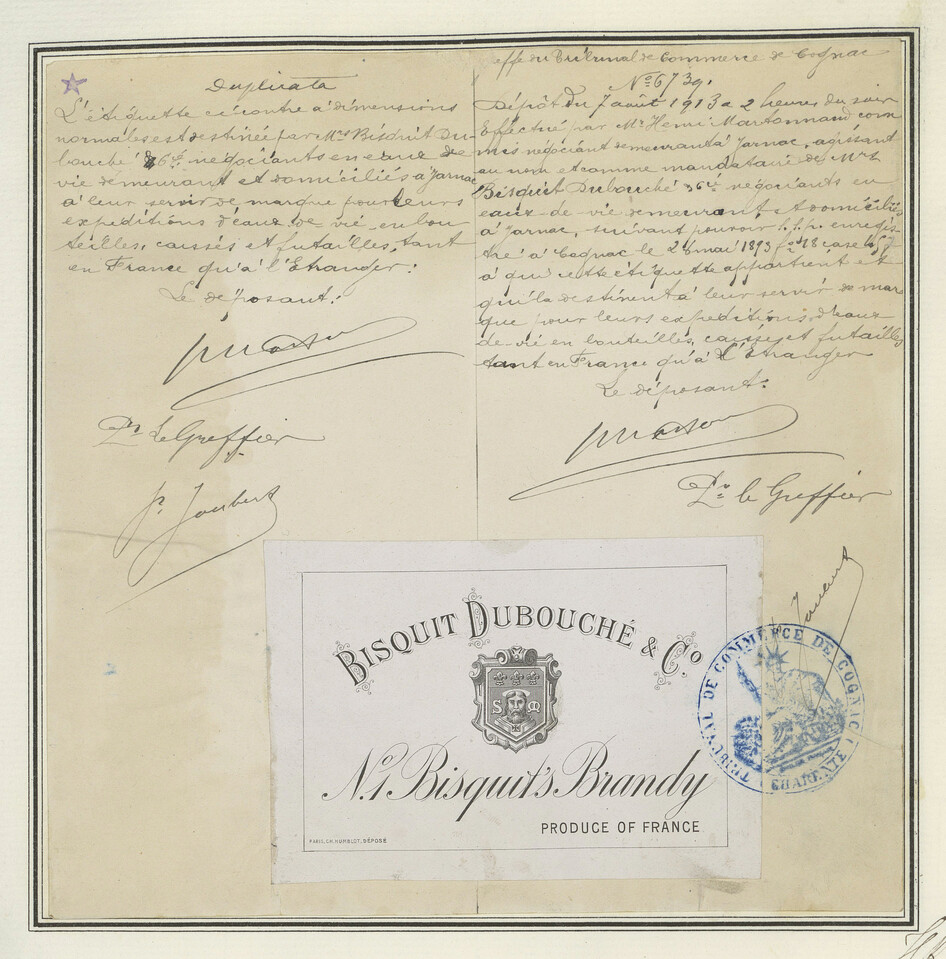 Duplicata
L'étiquette ci contre a dimensions
normales est destinée par Mrs Bisquit Du-
bouché & Cie négociants en eaux de
vie demeurant et domiciliés à Jarnac
à leur servir de marque pour leurs
expéditions d'eaux-de-vie en bou
teilles, caisses et futailles, tant
en France qu'à l'Etranger.
Le déposant:
Pr Le Greffier
P. Joubert
effe du Tribunal de Commerce de Cognac
No 6739.
Dépôt du 7 août 1913 a 2 heures du soir
Effectué par Mr Henri Martonnaud com
mis négociant demeurant à Jarnac, agissant
au nom et comme mandataire de Mrs
Bisquit Dubouché & Cie négociants en
eaux-de-vie demeurant et domiciliés
à Jarnac, suivant pouvoir s.s.p. enregis
tré à Cognac le 26 mai 1893 fo 18 case
à qui cette étiquette appartient et
qu'ils destinent à leur servir de mar
que pour leurs expéditions d'eaux-
de-vie en bouteilles, caisses et futailles
tant en France qu'à l'Etranger
Le déposant:
Pr le Greffier
BISQUIT DUBOUCHÉ & Co.
S M
No. 1 Bisquit's Brandy
PRODUCE OF FRANCE
PARIS, CH. HUMBLOT, DÉPOSÉ
TRIBUNAL DE COMMERCE DE COGNAC
(CHARENTE)